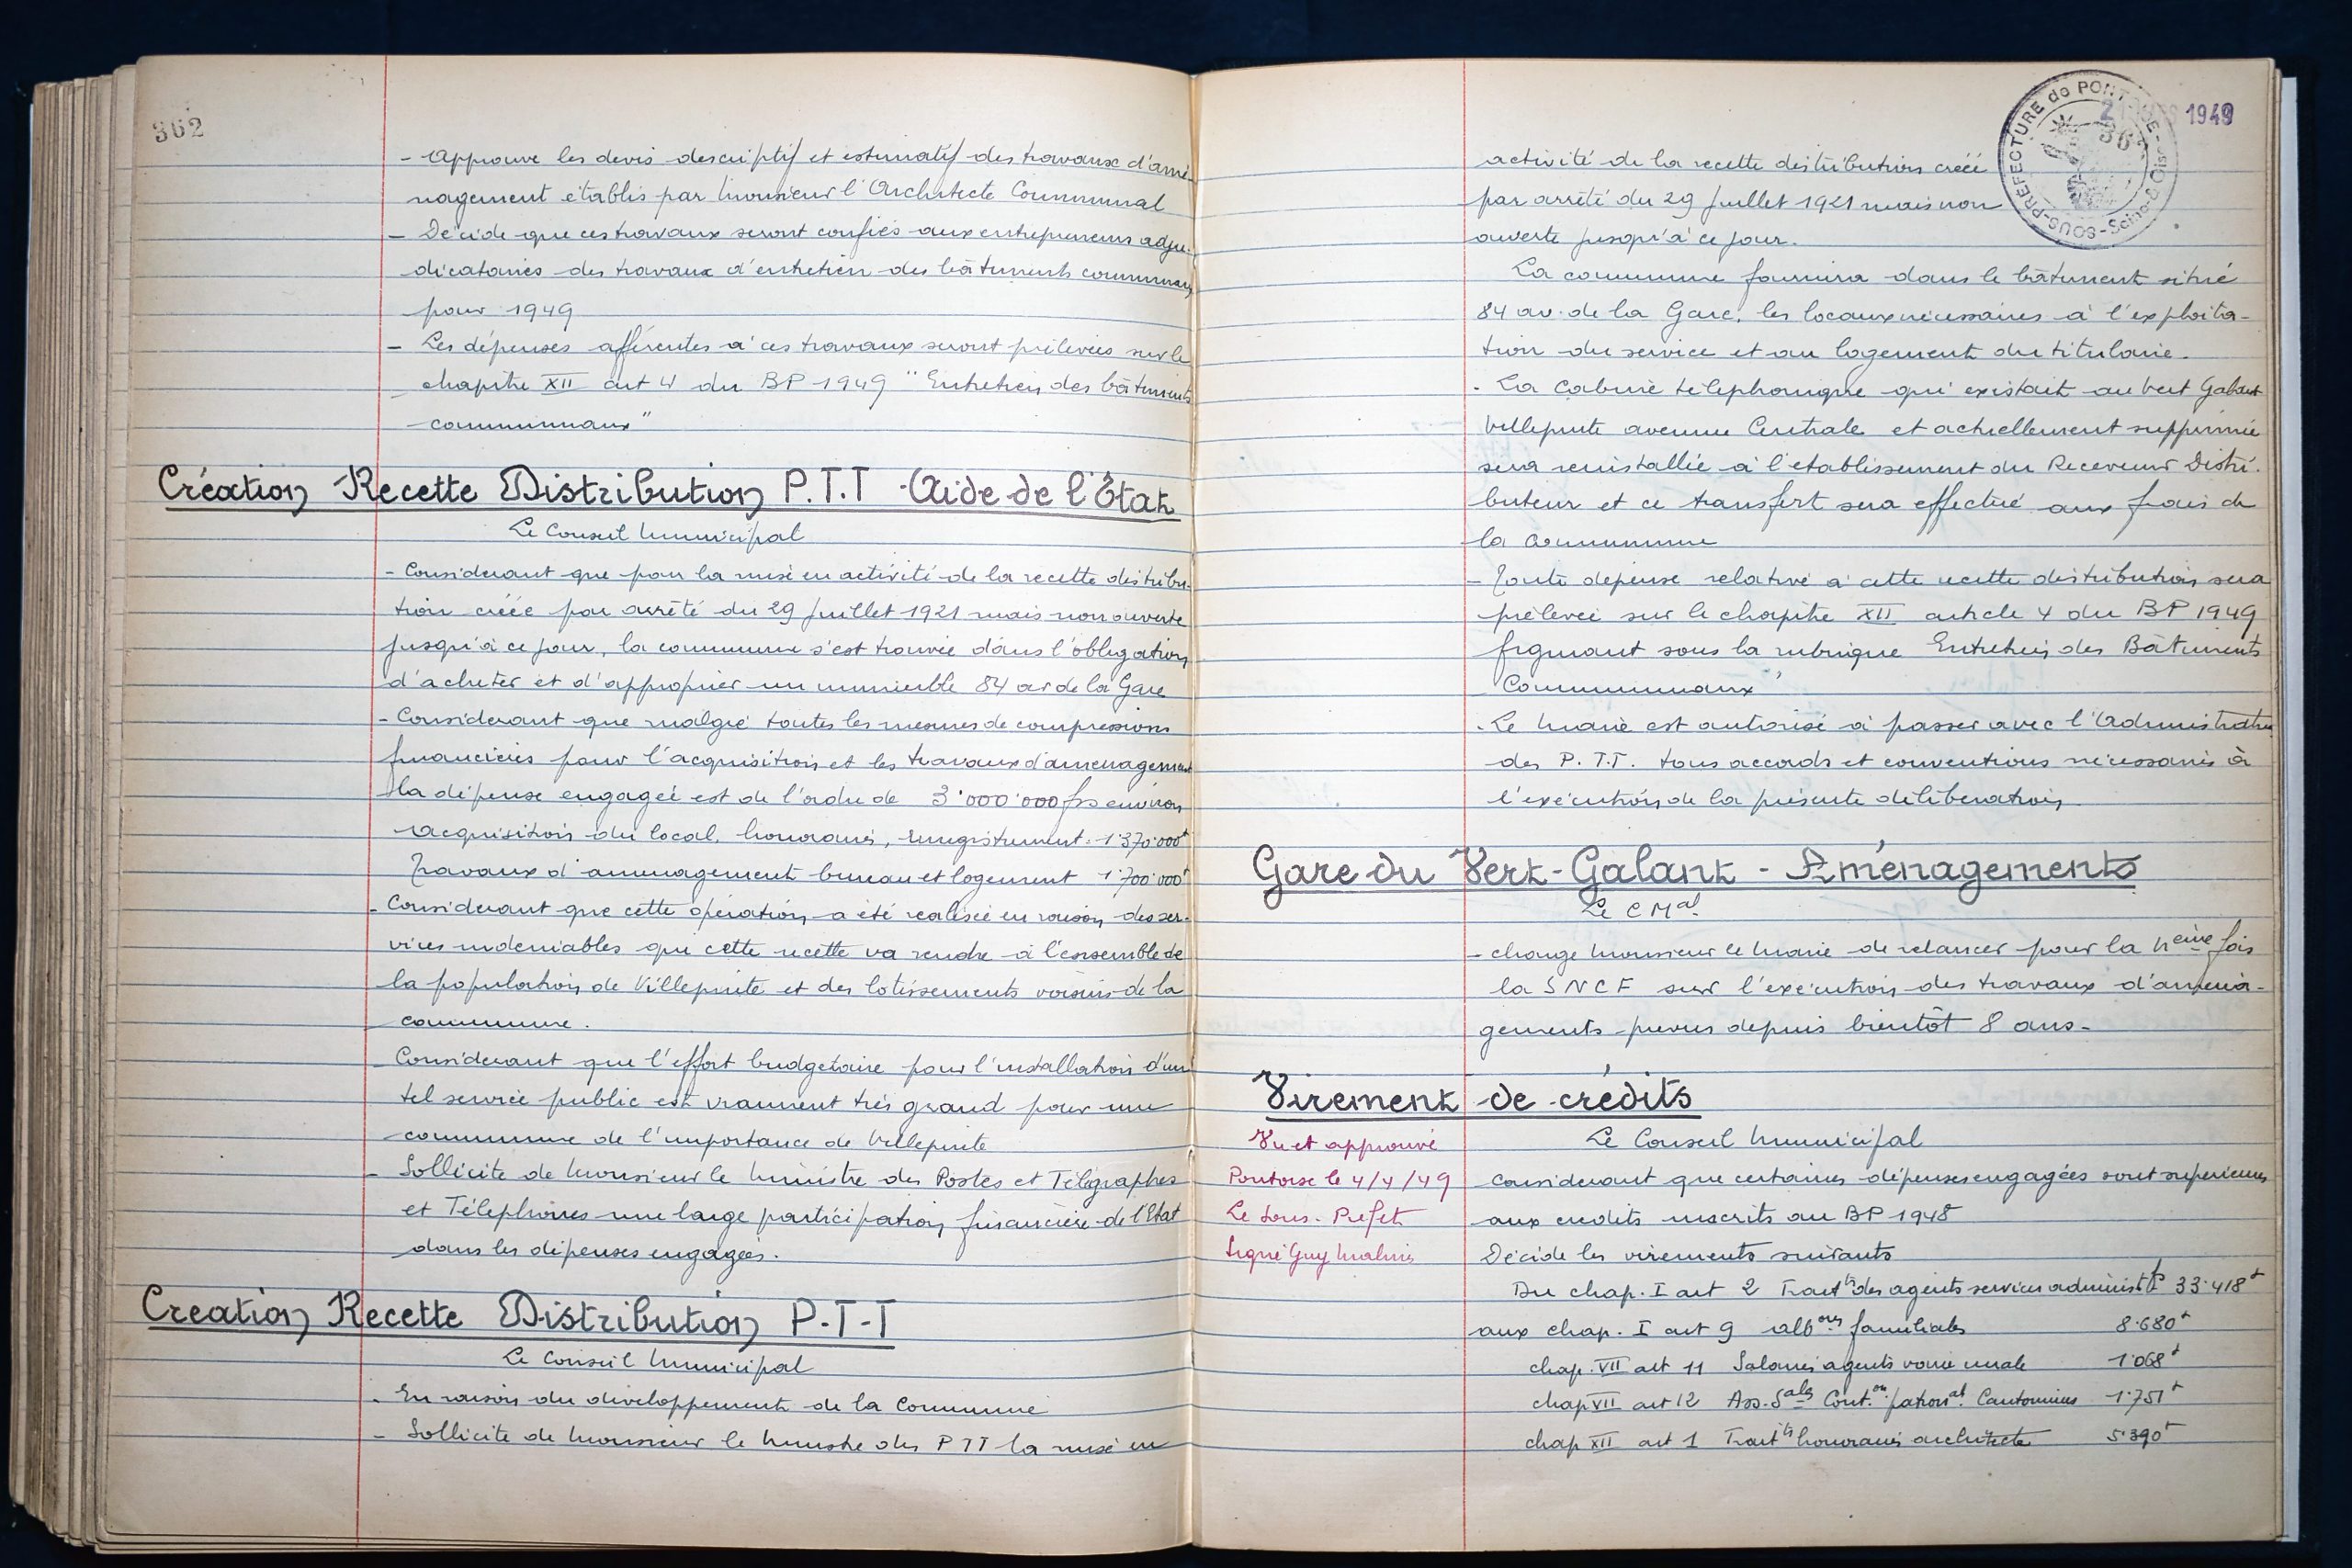 362
- Approuve les devis descriptif et estimatif des travaux d'amé-
nagement établis par Monsieur l'Architecte Communal
- Décide que ces travaux seront confiés aux entrepreneurs adju-
dicataires des travaux d'entretien des bâtiments communaux
pour 1949
- Les dépenses afférentes à ces travaux seront prélevées sur le
chapitre XII art 4 du BP 1949 "Entretien des bâtiments
communaux"
Création Recette Distribution P.T.T - Aide de l'État
Le Conseil Municipal
- Considerant que pour la mise en activité de la recette distribu-
tion créée par arrêté du 29 Juillet 1921 mais non ouverte
jusqu'à ce jour, la commune s'est trouvée dans l'obligation
d'acheter et d'approprier un immeuble 84 av de la Gare
- Considerant que malgré toutes les mesures de compressions
financières pour l'acquisition et les travaux d'aménagement
la dépense engagée est de l'ordre de 3.000.000 frs environ
Acquisition du local, honoraires, enregistrement. 1.370.000f
Travaux d'aménagement bureau et logement 1.700.000f
- Considerant que cette opération a été réalisée en raison des ser-
vices indeniables que cette recette va rendre à l'ensemble de
la population de Villepinte et des lotissements voisins de la
commune.
- Considerant que l'effort budgetaire pour l'installation d'un
tel service public est vraiment très grand pour une
commune de l'importance de Villepinte
- Sollicite de Monsieur le Ministre des Postes et Télégraphes
et Téléphones une large participation financière de l'Etat
dans les dépenses engagées.
Creation Recette Distribution P-T-T
Le Conseil Municipal
- En raison du développement de la Commune
- Sollicite de Monsieur le Ministre des PTT la mise en
SOUS-PRÉFECTURE de PONTOISE - Seine-&-Oise
1949
activité de la recette distribution créée
par arrêté du 29 Juillet 1921 mais non
ouverte jusqu'à ce jour.
La commune fournira dans le bâtiment situé
84 av. de la Gare, les locaux nécessaires à l'exploita-
tion du service et au logement du titulaire.
- La Cabine téléphonique qui existait au Vert Galant
Villepinte avenue Centrale et actuellement supprimée
sera reinstallée à l'etablissement du Receveur Distri-
buteur et ce transfert sera effectué aux frais de
la Commune
- Toute dépense relative à cette recette distribution sera
prélevée sur le chapitre XII article 4 du BP 1949
figurant sous la rubrique Entretien des Bâtiments
Communaux"
- Le Maire est autorisé à passer avec l'Administration
des P.T.T. tous accords et conventions nécessaires à
l'exécution de la présente délibération
Gare du Vert-Galant - Aménagements
Le C Mal
- charge Monsieur le Maire de relancer pour la Neme fois
la SNCF sur l'exécution des travaux d'aména-
gements prevus depuis bientôt 8 ans -
Virement de crédits
Vu et approuvé
Pontoise le 4/4/49
Le Sous-Préfet
Signé Guy
Le Conseil Municipal
considerant que certaines dépenses engagées sont superieures
aux credits inscrits au BP 1948
Décide les virements suivants
Du chap. I art 2 Traitts des agents services administfs 33.418f
aux chap. I art 9 allons familiales 8.680f
chap. VII art 11 Salaires agents voirie rurale 1.068f
chap VII art 12 Ass. Sales Conton. patronal Cantonniers 1.751f
chap XII art 1 Traitts honoraires architecte 5.390f